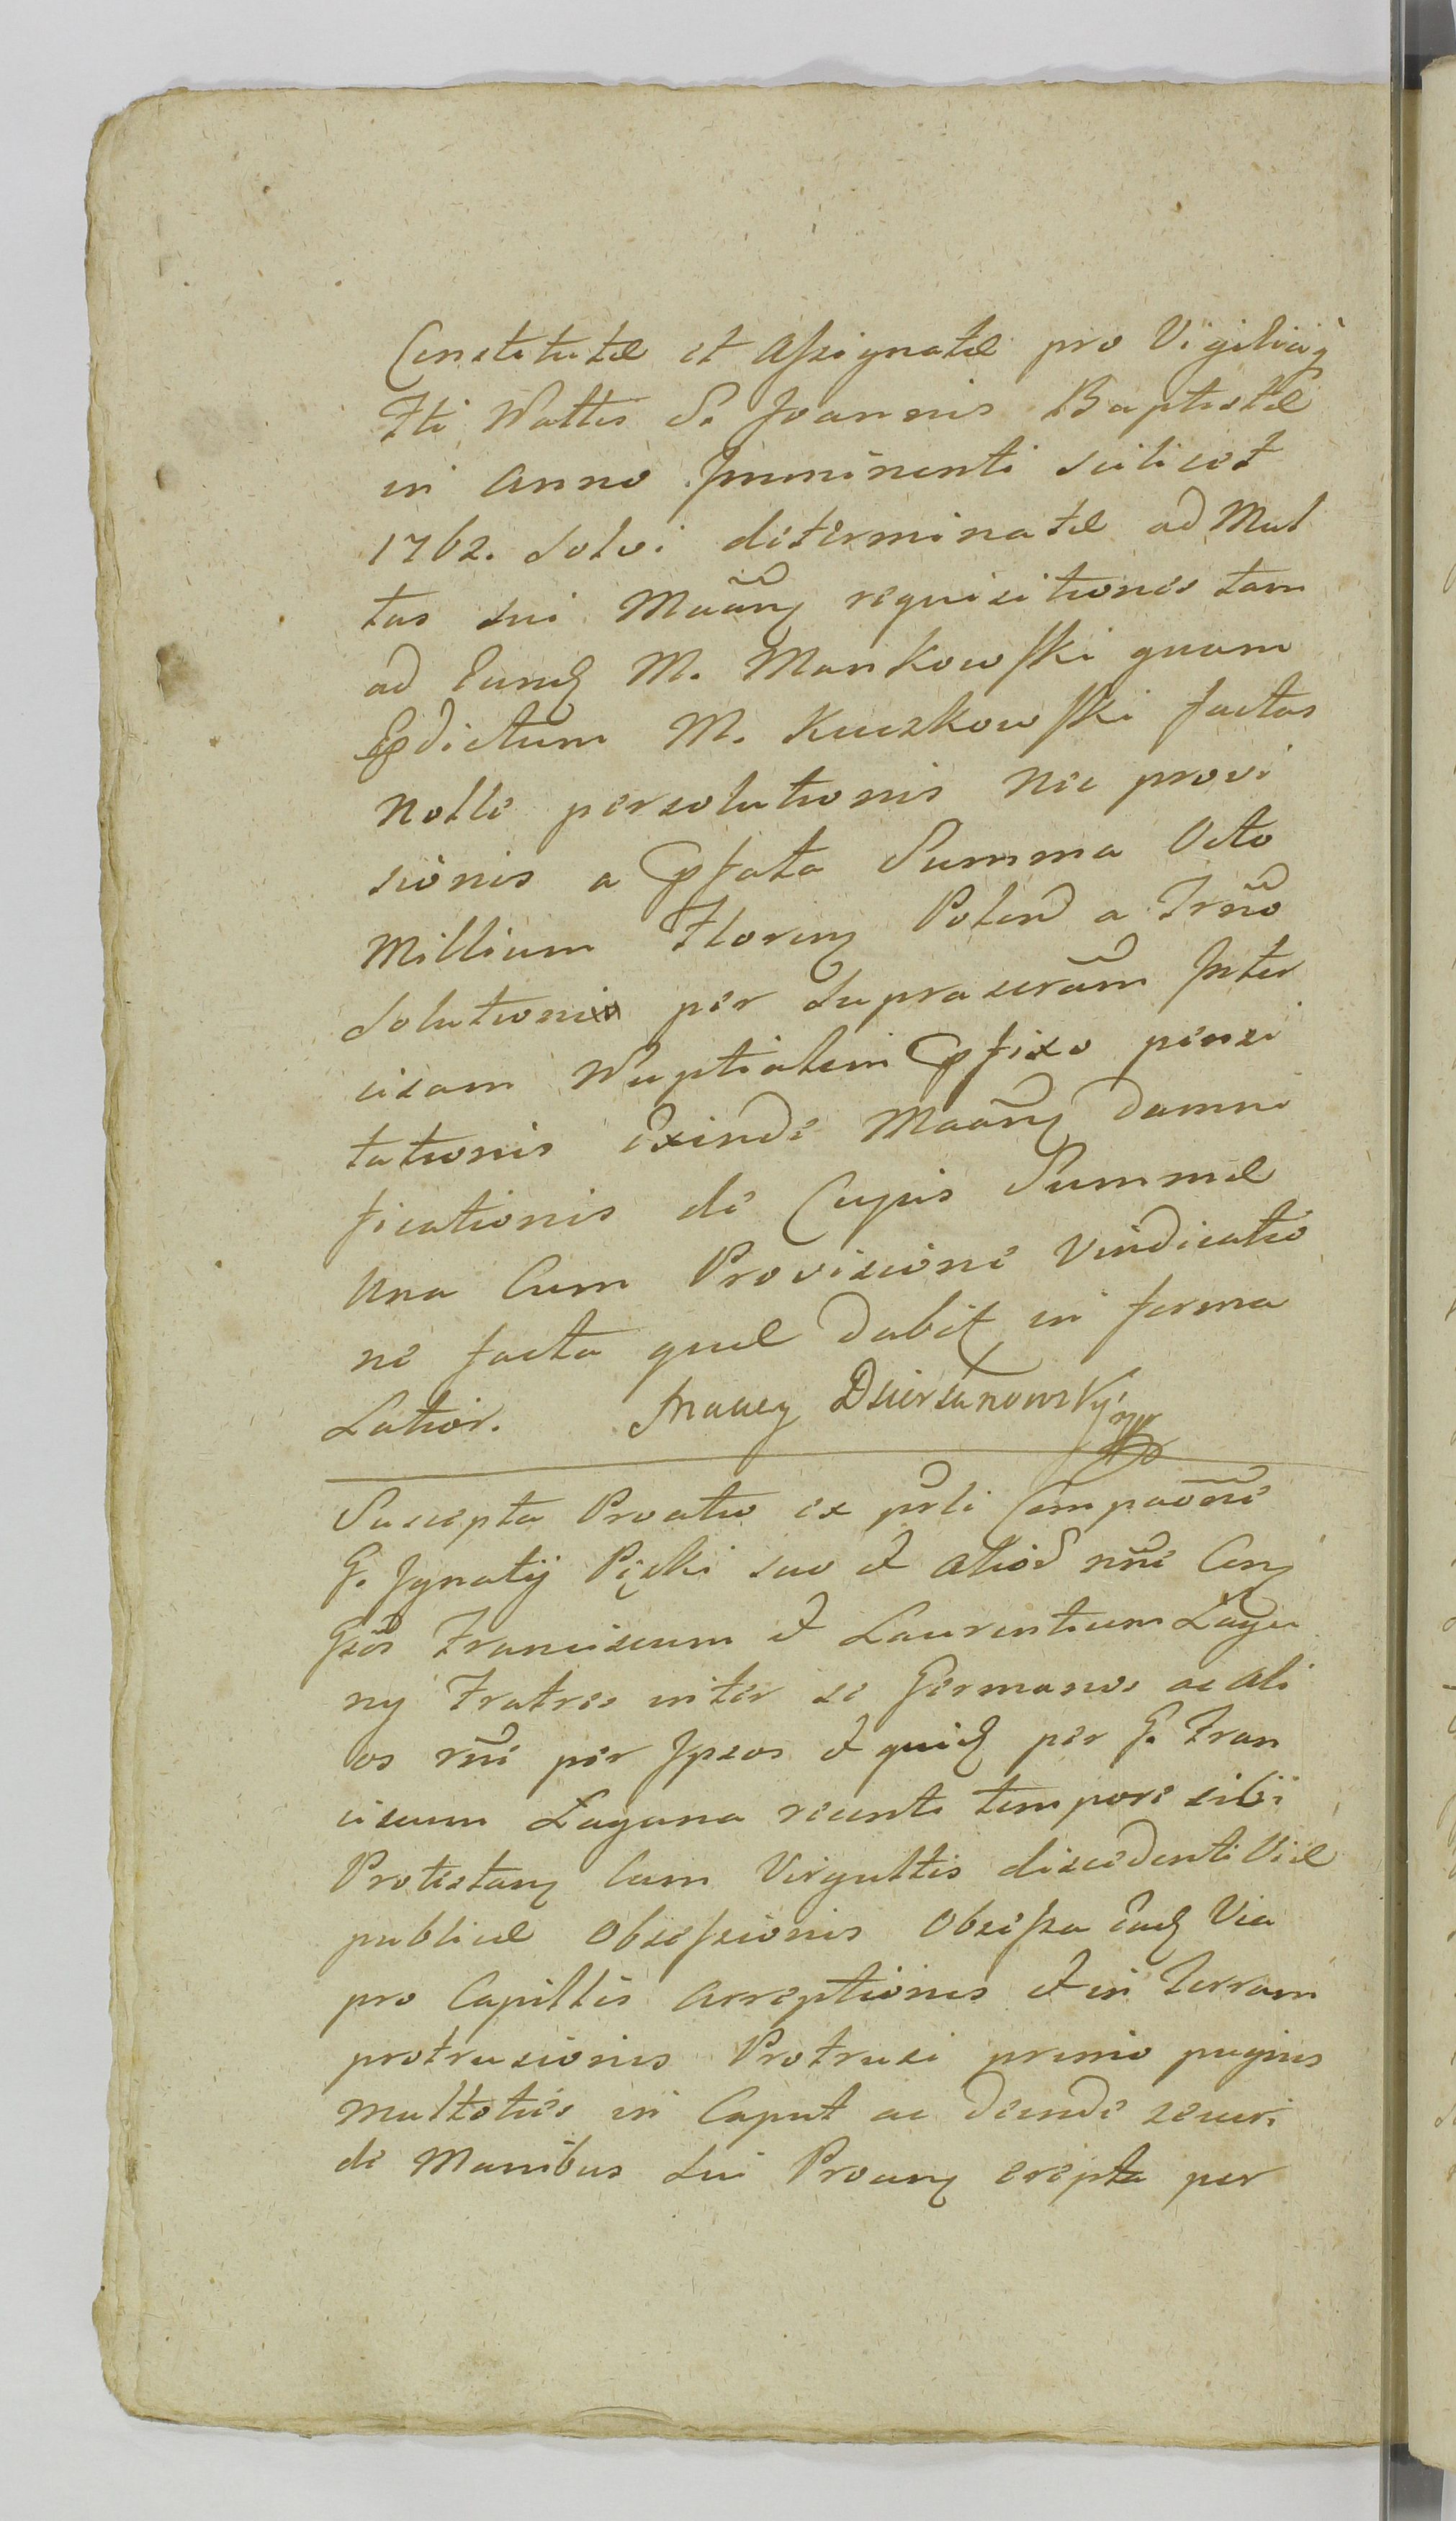 Constitutæ et Assignatæ pro Vigilia
Fti Nattis S. Joannis Baptistæ
in Anno Imminenti scilicet
1762. Solvi determinatæ ad Mul
tas sui Maãnȝ requisitiones tam
ad Eundȝ M. Mankowski quam
Prædictum M. Kuczkowski factas
Nolle persolutionis nec provi
sionis a præfata Summa Octo
Millium Florenȝ Polend a Trño
solutionis per suprascrãm Inter
cisam Nuptialem præfixo pensi
tationis Exinde Maãnȝ damni
ficationis de Cujus Summæ
Una Cum Provisione Vindicatio
ne facta quæ dabit in forma
Latior. Maciey Dzierżanowski mpp
Suscepta Proatio ex prli Compaõne
G. Ignatij Pięski suo et alior nñe Con
Gsos Franciscum et Laurentium Łagu
ny Fratres inter se Germanos ac ali
os rñe per Ipsos et quidȝ per G. Fran
ciscum Łaguna recenti tempore sibi
Protestanȝ Cum Virgultis discedenti Viæ
publicæ Obsessionis Obsessa Eadȝ Via
pro Capillis Arreptionis et in Terram
protrusionis Protrusi primo pugnis
Multoties in Caput ac deinde securi
de Manibus sui Proanȝ erepta per